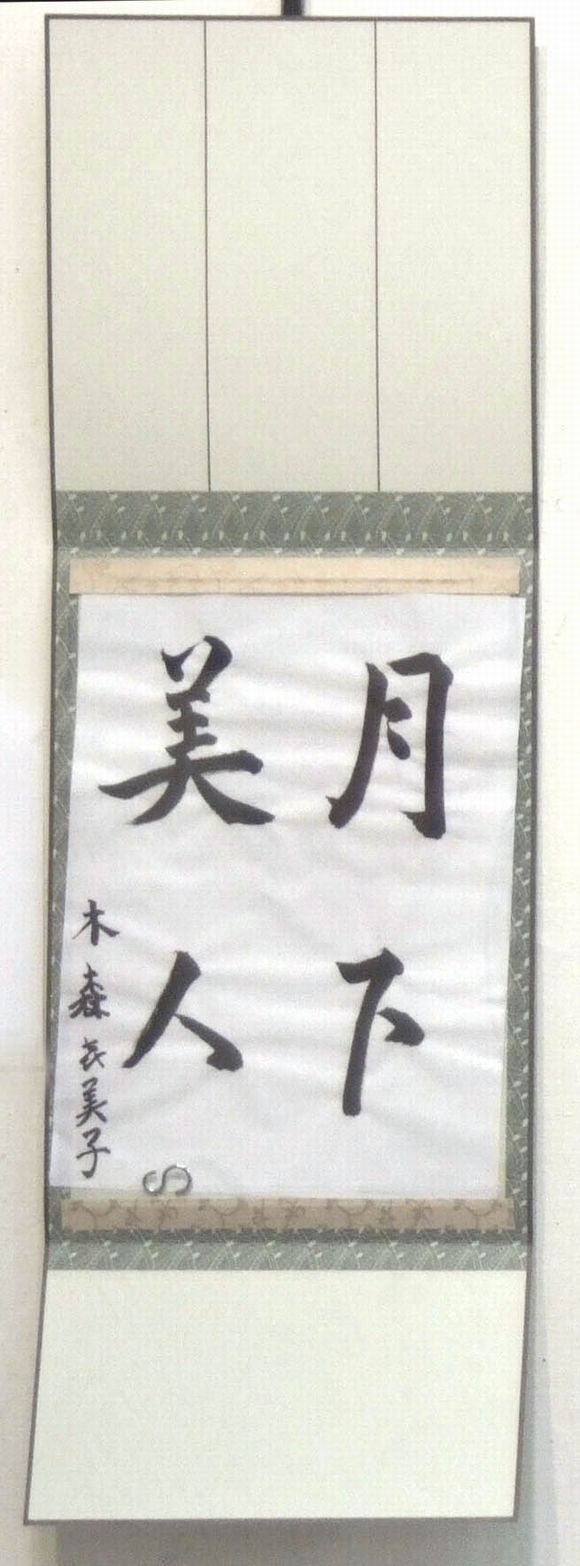 月下
美人
木森 美子